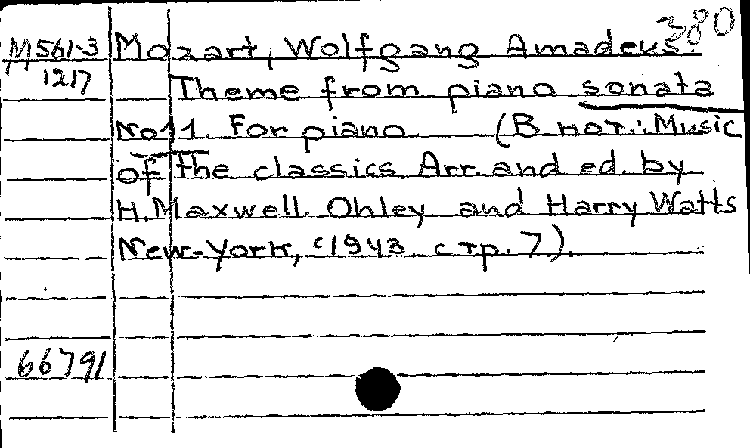 380
M561-3 Mozart, Wolfgang Amadeus.
1217
Theme from piano sonata
No 11. For piano (В нот.: Music
of the classics Arr. and ed. by
H. Maxwell Ohley and Harry Watts
New-York, c1943. стр. 7).
66791